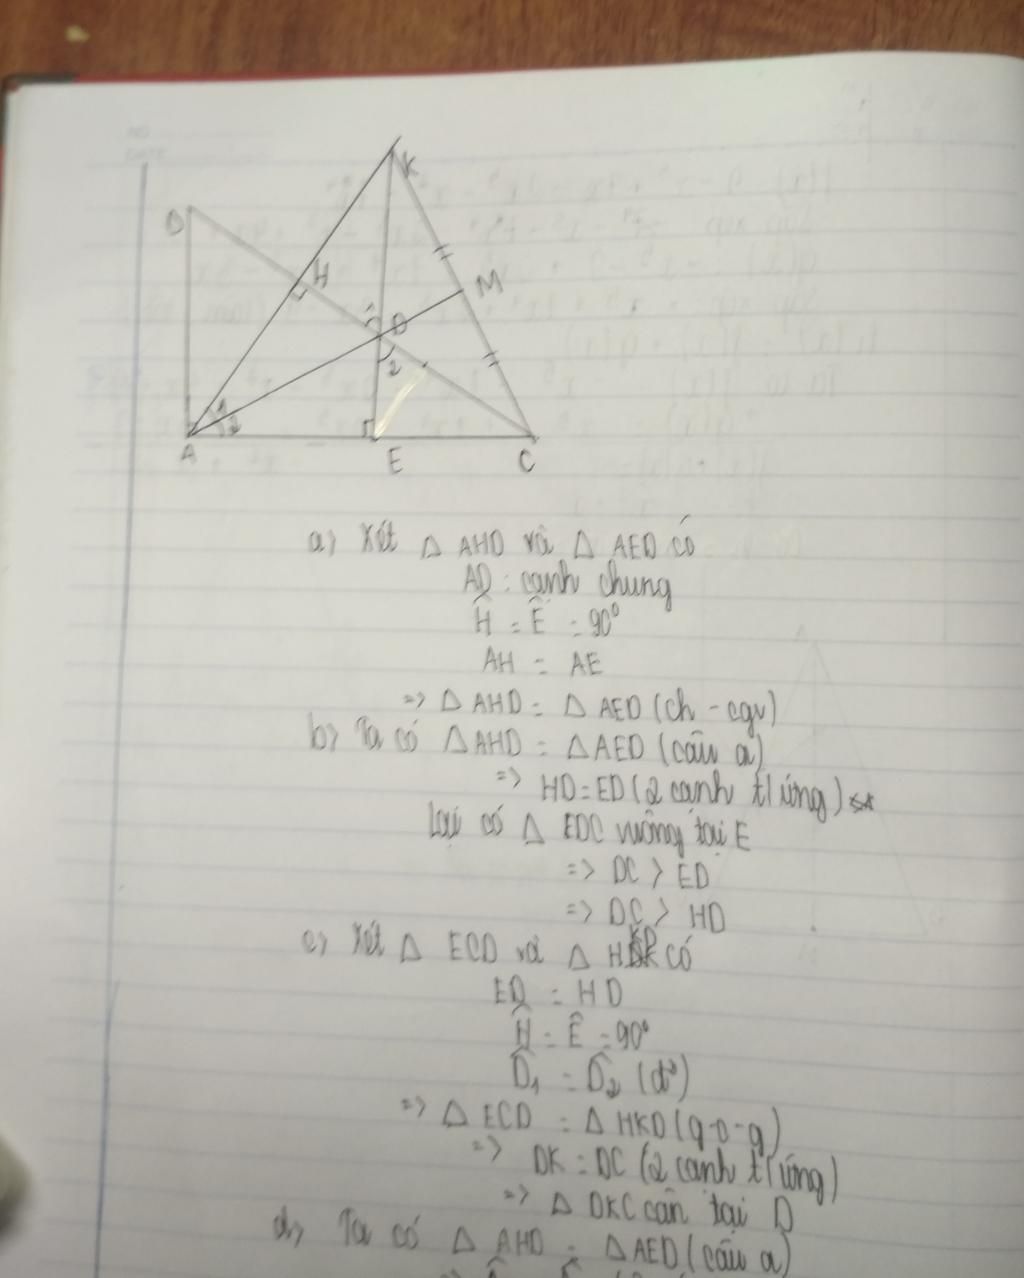 K
B
H
M
1
D
2
1
2
A
E
C
a) Xét △ AHD và △ AED có
AD : cạnh chung
Ĥ = Ê = 90°
AH = AE
=> △ AHD = △ AED (ch - cgv)
b) Ta có △ AHD = △ AED (câu a)
=> HD = ED (2 cạnh t/ứng)
Lại có △ EDC vuông tại E
=> DC > ED
=> DC > HD
c) Xét △ ECD và △ HKD có
ED = HD
Ĥ = Ê = 90°
D̂₁ = D̂₂ (đ²)
=> △ ECD = △ HKD (g-c-g)
=> DK = DC (2 cạnh t/ứng)
=> △ DKC cân tại D
d) Ta có △ AHD = △ AED (câu a)